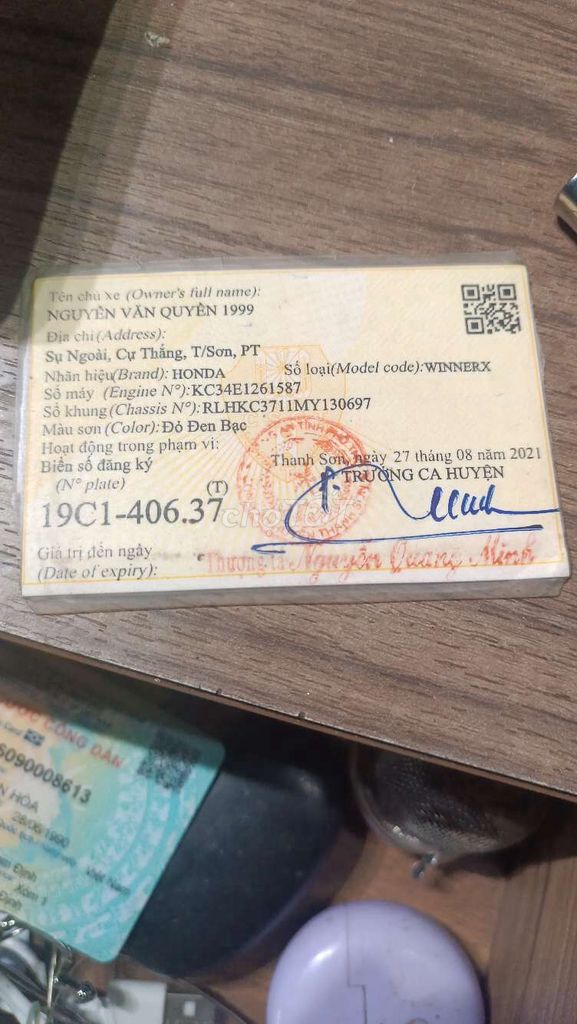 Tên chủ xe (Owner's full name):
NGUYỄN VĂN QUYỀN 1999
Địa chỉ (Address):
Sụ Ngoài, Cự Thắng, T/Sơn, PT
Nhãn hiệu(Brand): HONDA Số loại(Model code):WINNERX
Số máy (Engine N°):KC34E1261587
Số khung (Chassis N°):RLHKC3711MY130697
Màu sơn (Color): Đỏ Đen Bạc
Hoạt động trong phạm vi:
Thanh Sơn, ngày 27 tháng 08 năm 2021
Biển số đăng ký
TRƯỞNG CA HUYỆN
(N° plate)
(T)
19C1-406.37
chợTỐT
Giá trị đến ngày
Thượng tá Nguyễn Quang Minh
(Date of expiry):
CÔNG DÂN
6090008613
HÒA
28/06/1990
Việt Nam
Định
Xóm 1
Định